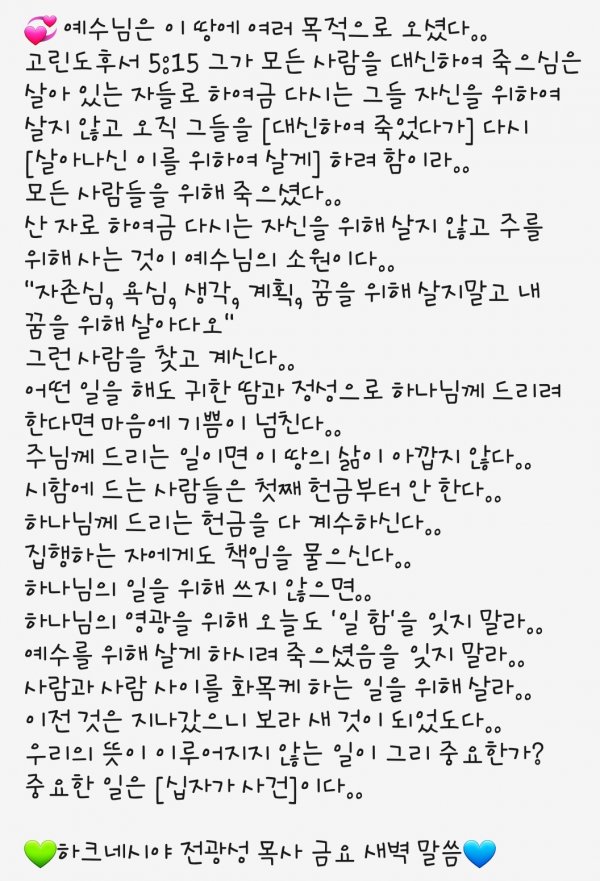 💞 예수님은 이 땅에 여러 목적으로 오셨다..
고린도후서 5:15 그가 모든 사람을 대신하여 죽으심은
살아 있는 자들로 하여금 다시는 그들 자신을 위하여
살지 않고 오직 그들을 [대신하여 죽었다가] 다시
[살아나신 이를 위하여 살게] 하려 함이라..
모든 사람들을 위해 죽으셨다..
산 자로 하여금 다시는 자신을 위해 살지 않고 주를
위해 사는 것이 예수님의 소원이다..
"자존심, 욕심, 생각, 계획, 꿈을 위해 살지말고 내
꿈을 위해 살아다오"
그런 사람을 찾고 계신다..
어떤 일을 해도 귀한 땀과 정성으로 하나님께 드리려
한다면 마음에 기쁨이 넘친다..
주님께 드리는 일이면 이 땅의 삶이 아깝지 않다..
시험에 드는 사람들은 첫째 헌금부터 안 한다..
하나님께 드리는 헌금을 다 계수하신다..
집행하는 자에게도 책임을 물으신다..
하나님의 일을 위해 쓰지 않으면..
하나님의 영광을 위해 오늘도 '일 함'을 잊지 말라..
예수를 위해 살게 하시려 죽으셨음을 잊지 말라..
사람과 사람 사이를 화목케 하는 일을 위해 살라..
이전 것은 지나갔으니 보라 새 것이 되었도다..
우리의 뜻이 이루어지지 않는 일이 그리 중요한가?
중요한 일은 [십자가 사건]이다..
💚하크네시야 전광성 목사 금요 새벽 말씀💙